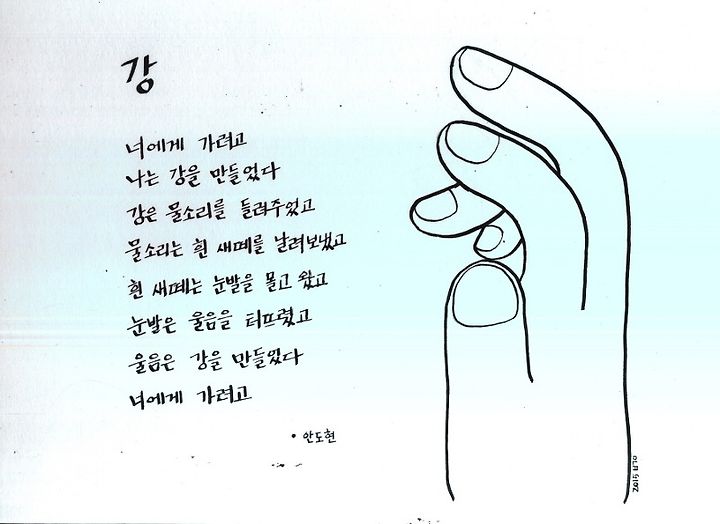 강
너에게 가려고
나는 강을 만들었다
강은 물소리를 들려주었고
물소리는 흰 새떼를 날려보냈고
흰 새떼는 눈발을 몰고 왔고
눈발은 울음을 터뜨렸고
울음은 강을 만들었다
너에게 가려고
• 안도현
2015